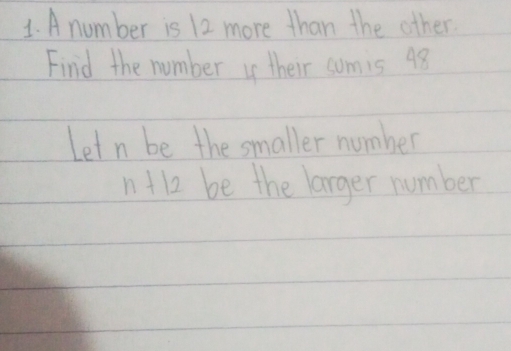 1. A number is 12 more than the other.
Find the number if their sum is 48
Let n be the smaller number
n + 12 be the larger number